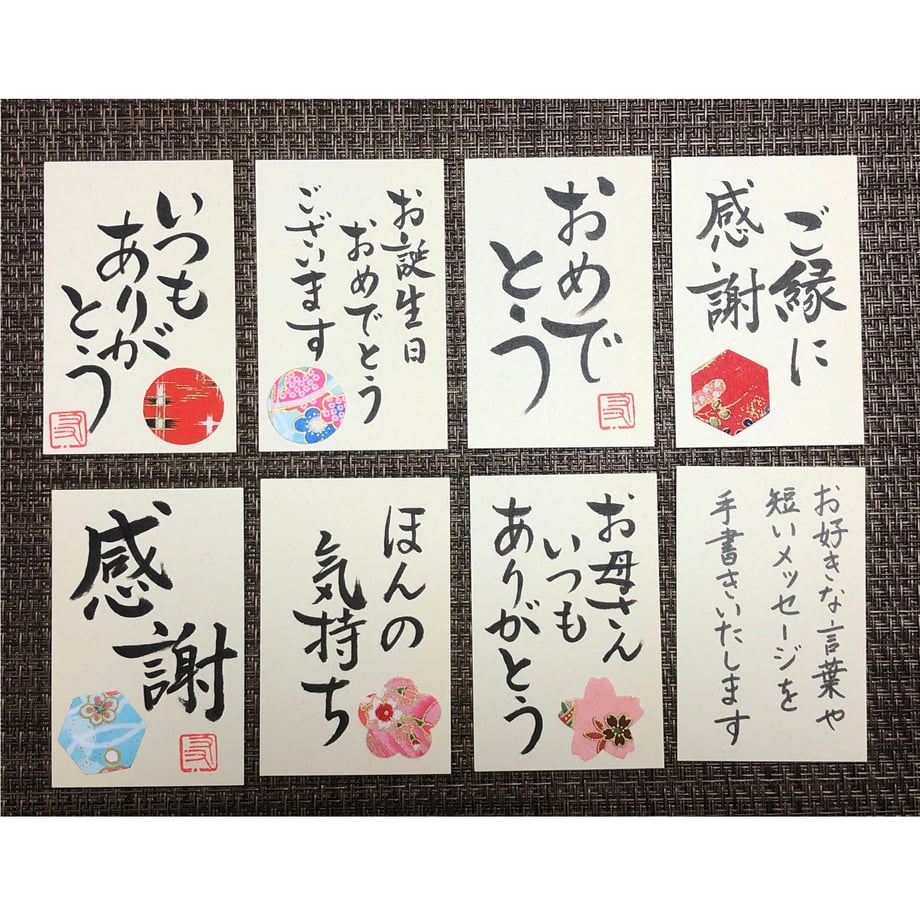 いつも
ありが
とう
お誕生日
おめでとう
ございます
おめで
とう
ご縁に
感謝
感
謝
ほんの
気持ち
お母さん
いつも
ありがとう
お好きな言葉や
短いメッセージを
手書きいたします